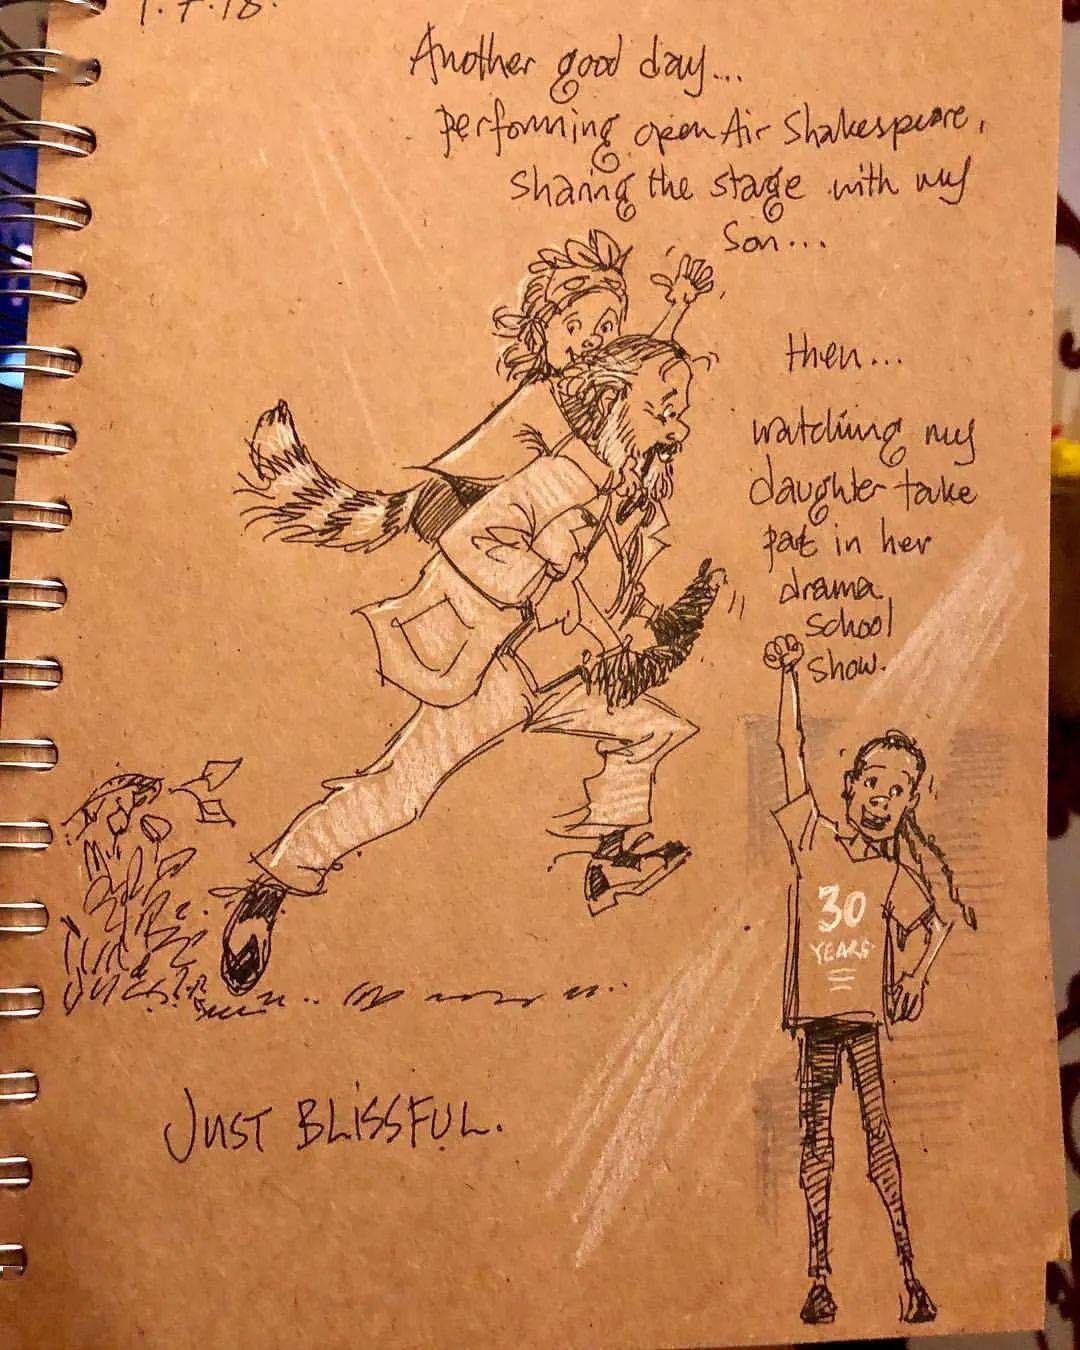 1.7.18.
Another good day...
performing open Air Shakespeare,
sharing the stage with my
son...
then...
watching my
daughter take
part in her
drama
school
show.
30
YEARS
JUST BLISSFUL.